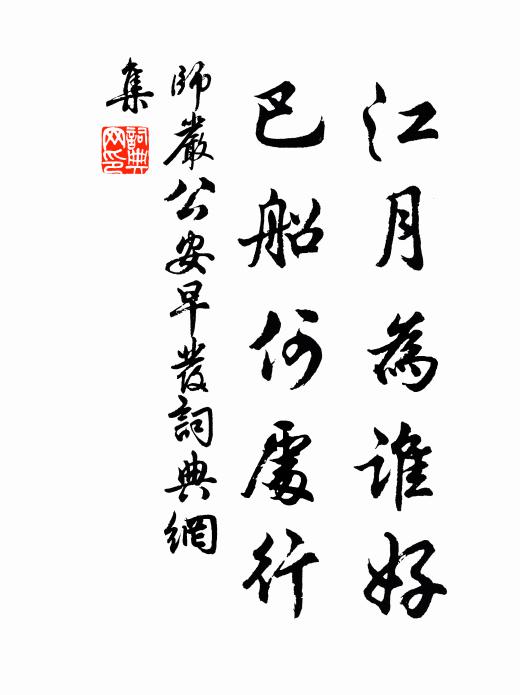 江月為誰好
巴船何處行
師嚴公安早發詞典網
集
詞典
网印